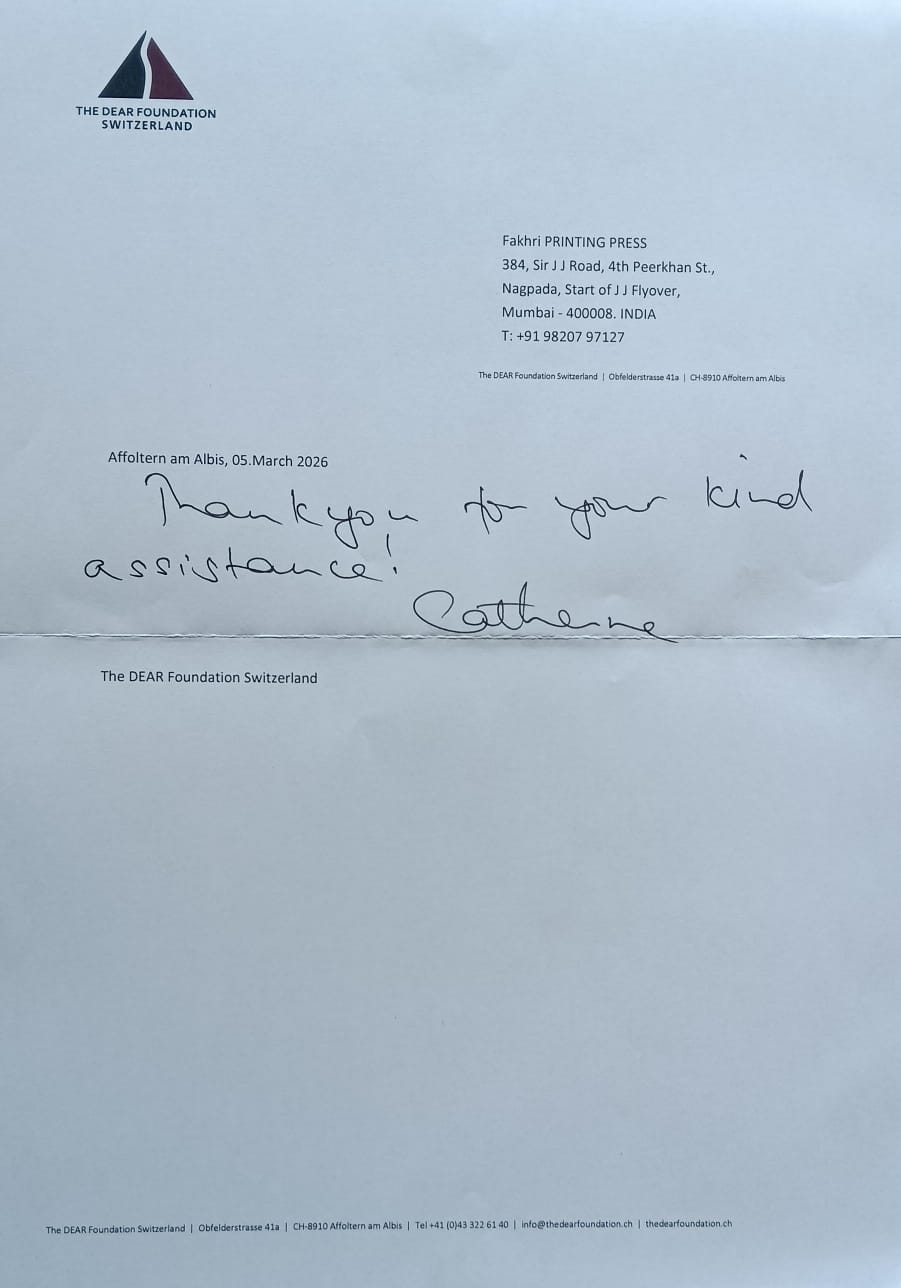 THE DEAR FOUNDATION
SWITZERLAND
Fakhri PRINTING PRESS
384, Sir J J Road, 4th Peerkhan St.,
Nagpada, Start of J J Flyover,
Mumbai - 400008. INDIA
T: +91 98207 97127
The DEAR Foundation Switzerland | Obfelderstrasse 41a | CH-8910 Affoltern am Albis
Affoltern am Albis, 05.March 2026
Thank you for your kind
assistance!
Catherine
The DEAR Foundation Switzerland
The DEAR Foundation Switzerland | Obfelderstrasse 41a | CH-8910 Affoltern am Albis | Tel +41 (0)43 322 61 40 | info@thedearfoundation.ch | thedearfoundation.ch